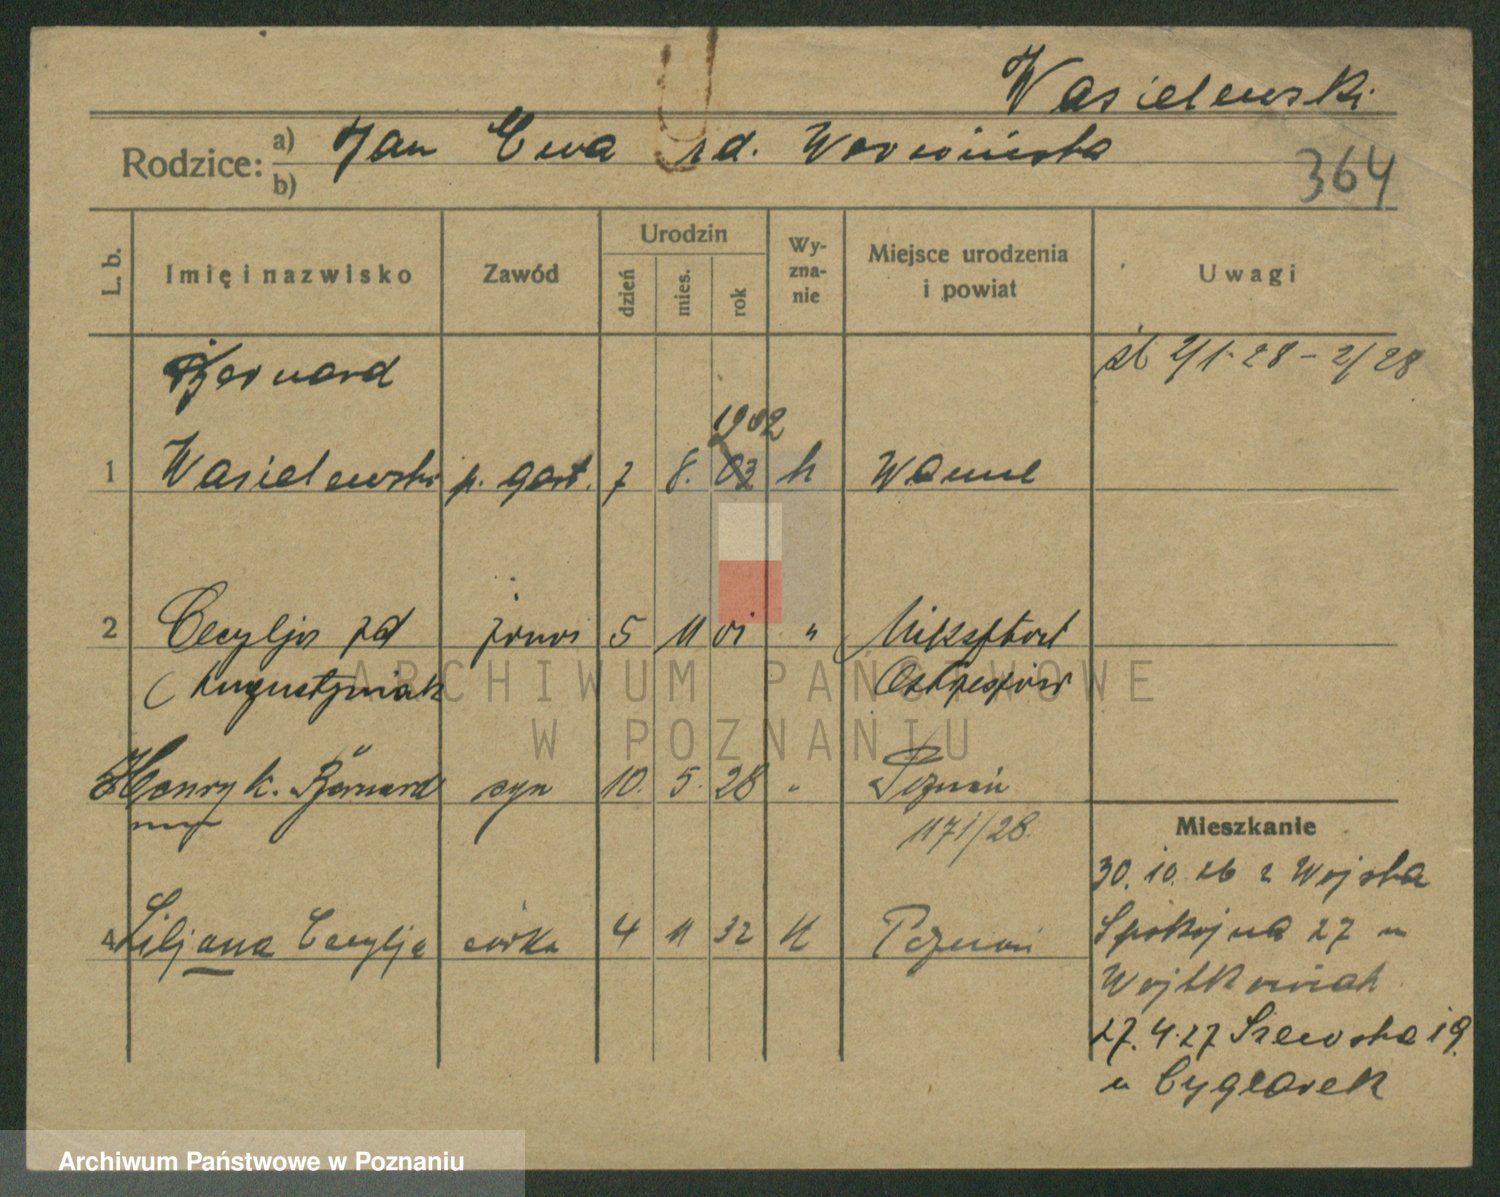 Wasielewski
Rodzice: a) Jan Ewa zd.
b)
364
L. b.
Imię i nazwisko
Zawód
Urodzin
dzień
mies.
rok
Wy-
zna-
nie
Miejsce urodzenia
i powiat
Uwagi
Bernard
śl. 2/1-28 - 2/28
1902
1 Wasielewski p. gast. 7 8. 03 k Wanne
2 Cecylja zd żona 5 11 01 " Mikstat
Augustyniak Ostrzeszów
Henryk. Bernard syn 10. 5. 28 " Poznań
1171/28.
4 Liljana Cecylja córka 4 11 32 k Poznań
Mieszkanie
30. 10. 26 z Wojska
Spokojna 27 u
Wojtkowiak
27. 4. 27 Szewska 19.
u Cyglarek
ARCHIWUM PAŃSTWOWE
W POZNANIU
Archiwum Państwowe w Poznaniu